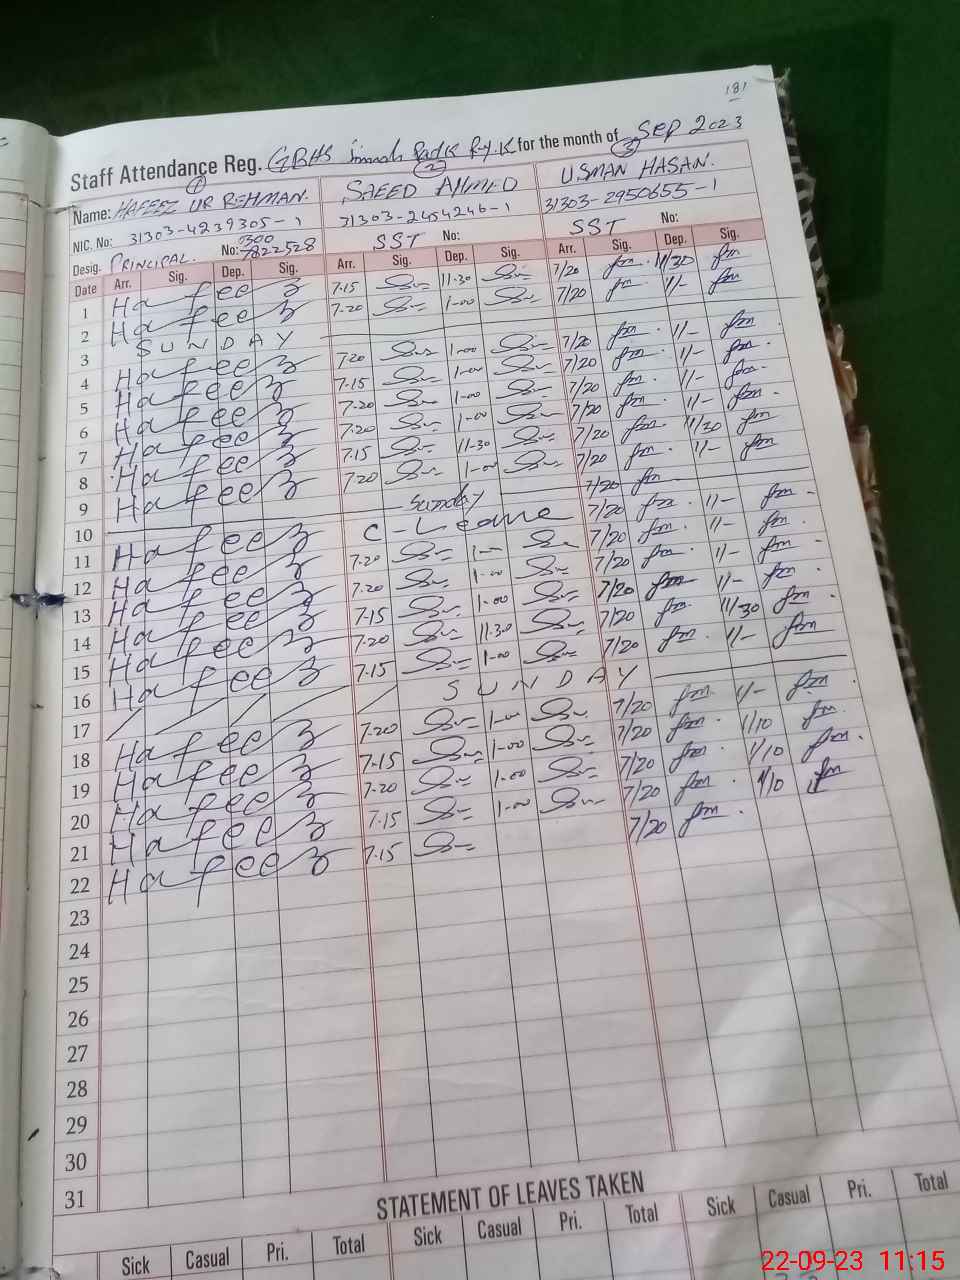 181
Staff Attendance Reg. GBHS Jinnah Park R.Y.K for the month of Sep 2023
① ② ③
Name: HAFEEZ UR REHMAN. SAEED AHMED USMAN HASAN.
NIC. No: 31303-4239305-1 31303-2454246-1 31303-2950655-1
Desig. PRINCIPAL. No: 300 7822528 SST No: SST No:
Date Arr. Sig. Dep. Sig. Arr. Sig. Dep. Sig. Arr. Sig. Dep. Sig.
1 Hafeez 7.15 11.30 7/20 11/30
2 Hafeez 7.20 1-00 7/20 1/-
3 SUNDAY
4 Hafeez 7.20 1-00 7/20 1/-
5 Hafeez 7.15 1-00 7/20 1/-
6 Hafeez 7.20 1-00 7/20 1/-
7 Hafeez 7.20 1-00 7/20 1/-
8 Hafeez 7.15 11.30 7/20 11/30
9 Hafeez 7.20 1-00 7/20 1/-
10 Sunday 7/20
11 Hafeez C Leave 7/20 1/-
12 Hafeez 7.20 1- 7/20 1/-
13 Hafeez 7.20 1-00 7/20 1/-
14 Hafeez 7.15 1-00 7/20 1/-
15 Hafeez 7.20 11.30 7/20 11/30
16 Hafeez 7.15 1-00 7/20 1/-
17 SUNDAY
18 Hafeez 7.20 1-00 7/20 1/-
19 Hafeez 7.15 1-00 7/20 1/10
20 Hafeez 7.20 1-00 7/20 1/10
21 Hafeez 7.15 1-00 7/20 1/10
22 Hafeez 7.15 7/20
23
24
25
26
27
28
29
30
31
STATEMENT OF LEAVES TAKEN
Sick Casual Pri. Total Sick Casual Pri. Total Sick Casual Pri. Total
22-09-23 11:15